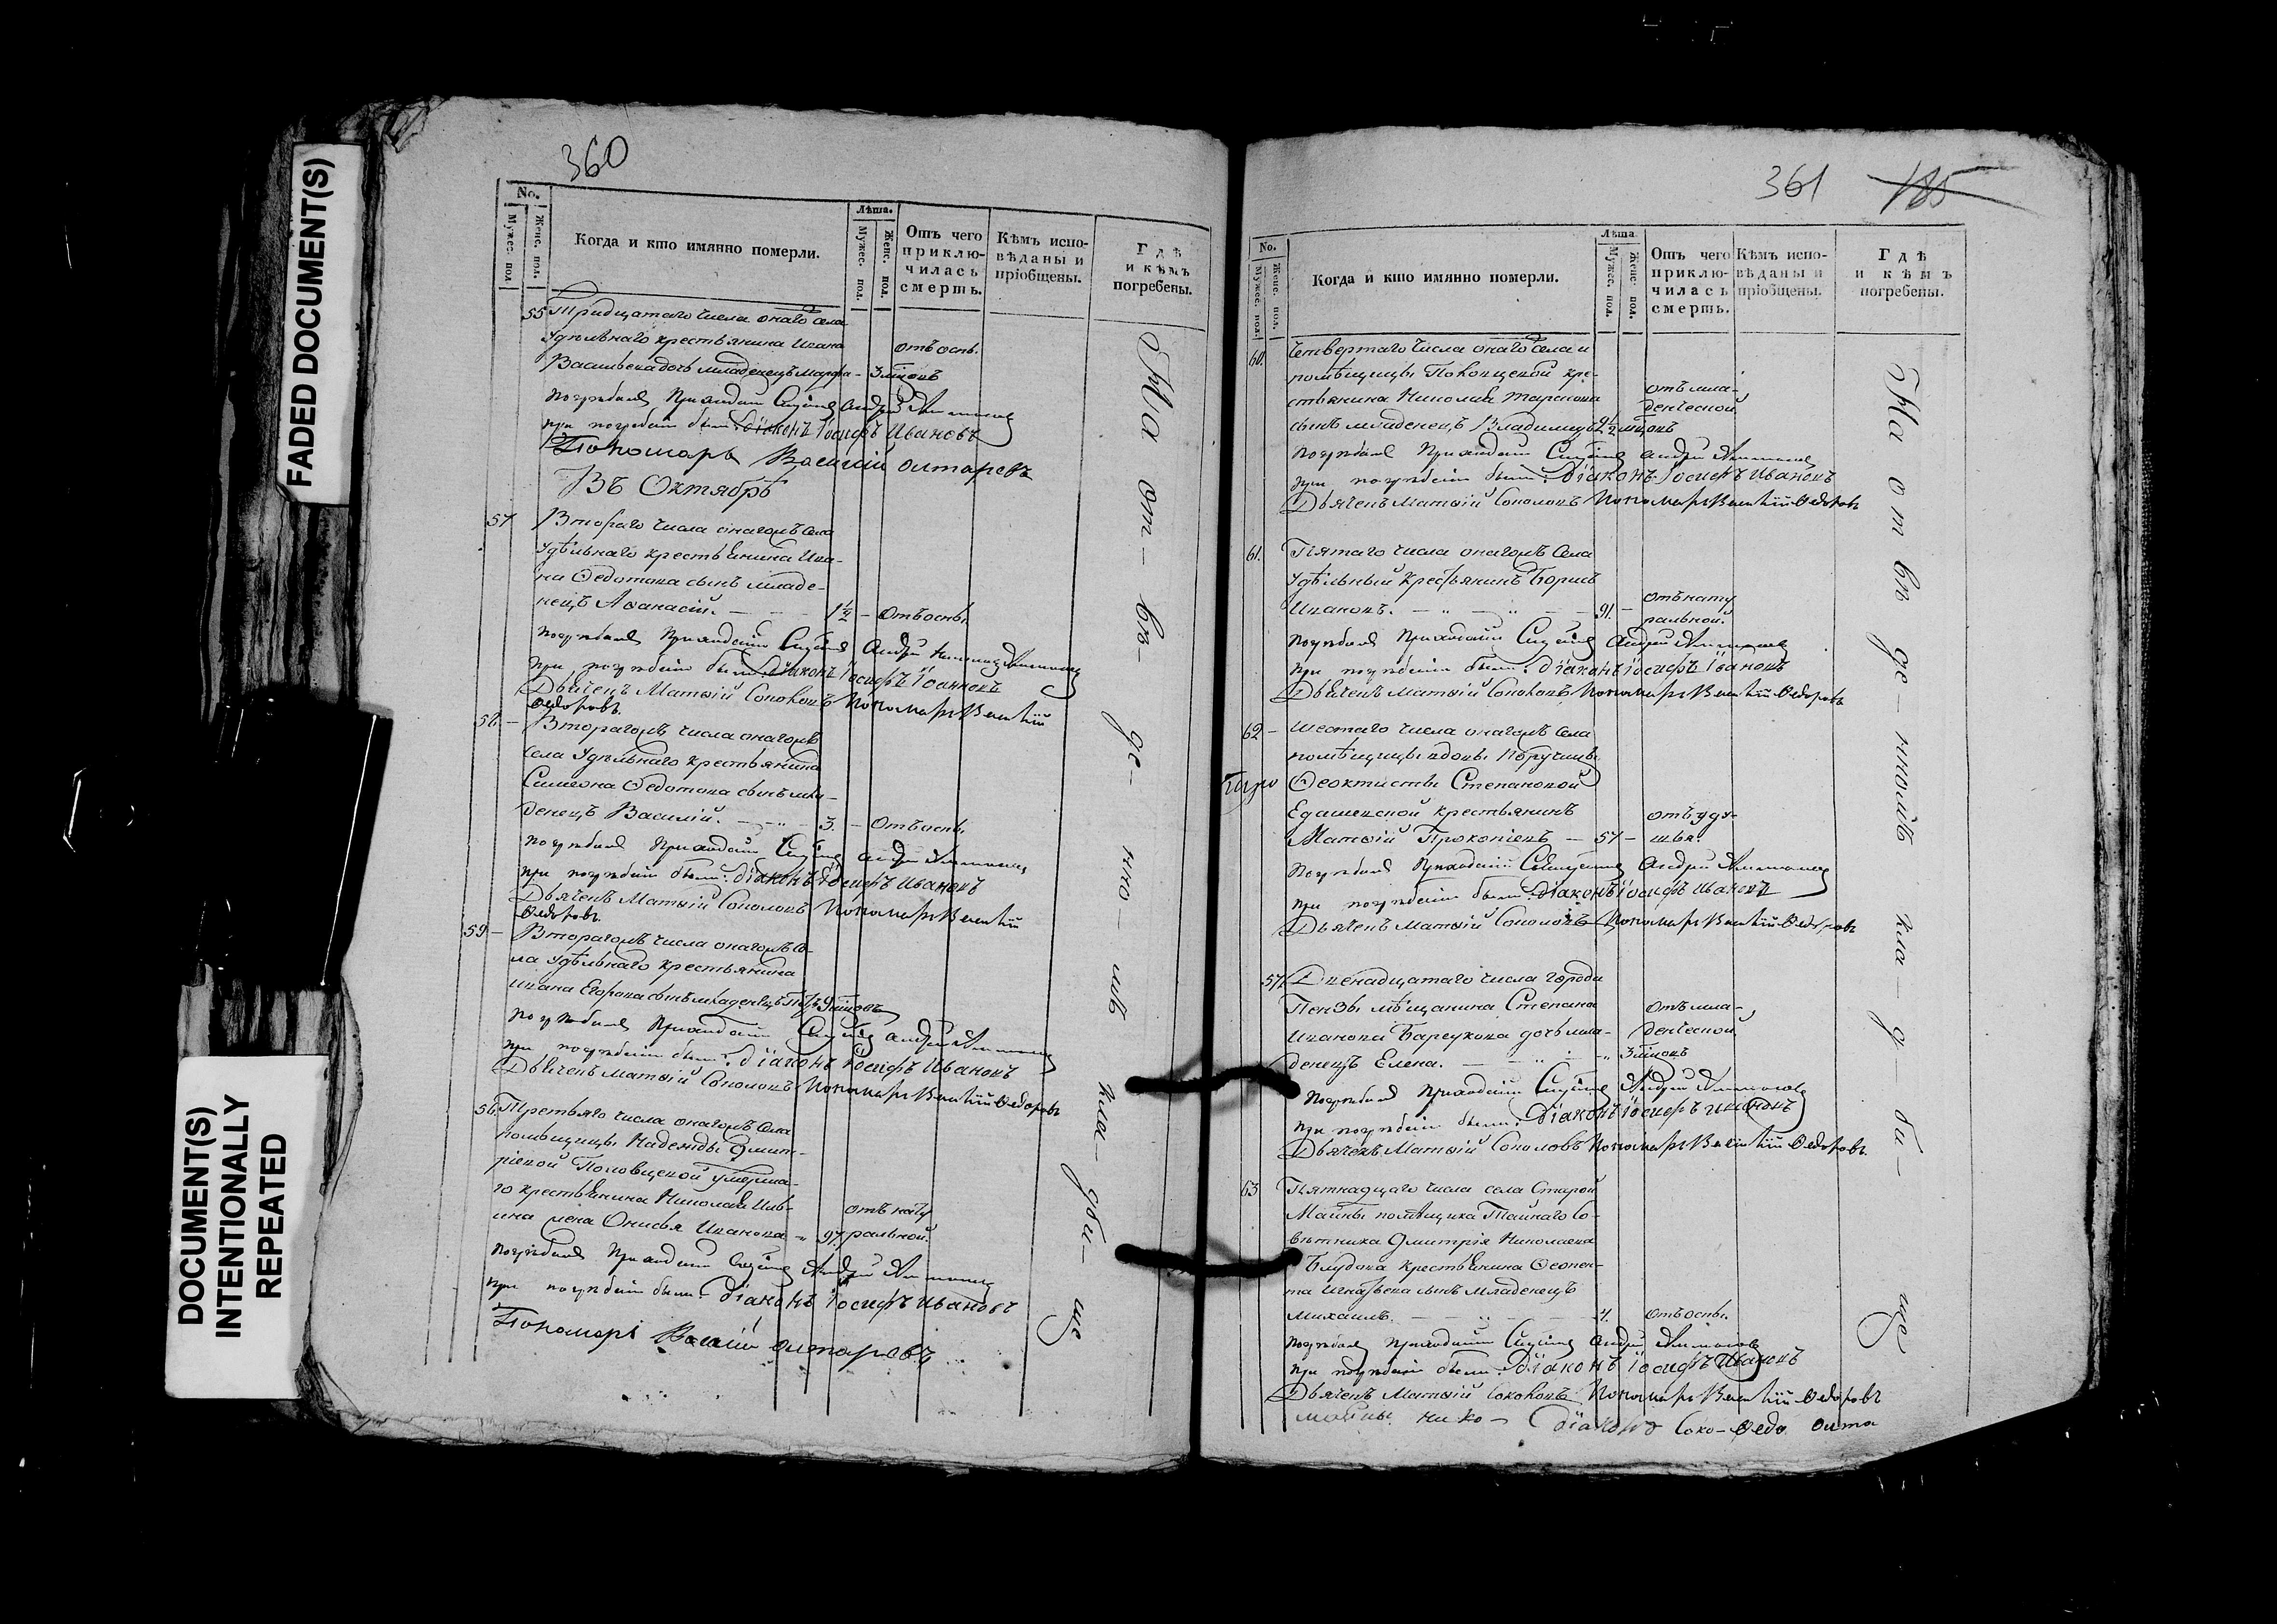 FADED DOCUMENT(S)
DOCUMENT(S)
INTENTIONALLY
REPEATED
360
No.
Мужес. пол
Женс. пол.
Когда и кто имянно померли.
Лѣта.
Мужес. пол.
Женс. пол.
Отъ чего
приклю-
чилась
смерть.
Кѣмъ испо-
вѣданы и
пріобщены.
Гдѣ
и кѣмъ
погребены.
55 Тридцатаго числа онаго села
Удѣльнаго крестьянина Ивана
Васильева дочь младенецъ Марфа - 3 отъ оспы.
погребалъ Приходскій Андрей
при погребеніи были: діаконъ Іосифъ Ивановъ
Пономарь Василій олтаревъ
Въ Октябрѣ
57 Втораго числа онагожъ села
Удѣльнаго крестьянина Ива-
на Ѳедотова сынъ младе-
нецъ Аѳанасій. 1½ - Отъ оспы.
погребалъ Приходскій Андрей
при погребеніи были: діаконъ Іосифъ Іоанновъ
Дьячекъ Матѳій Соколовъ Пономарь Василій
Ѳедоровъ.
58. - Вторагожъ числа онагожъ
села Удѣльнаго крестьянина
Симеона Ѳедотова сынъ мла-
денецъ Василій. 3. - Отъ оспы.
погребалъ Приходскій Андрей
при погребеніи были: діаконъ Іосифъ Ивановъ
Дьячекъ Матѳій Соколовъ Пономарь Василій
Ѳедоровъ.
59 - Вторагожъ числа онагожъ се-
ла Удѣльнаго крестьянина
Ивана Егорова сынъ младенецъ
погребалъ Приходскій Андрей
при погребеніи были: діаконъ Іосифъ Ивановъ
Дьячекъ Матѳій Соколовъ Пономарь Василій Ѳедоровъ
56. Третьяго числа онагожъ села
помѣщицы Надежды Дмит-
ріевой умерша-
го крестьянина Николая
жена Онисья Иванова - 97. отъ нату
ральной.
погребалъ Приходскій Андрей
при погребеніи были: діаконъ Іосифъ Ивановъ
Пономарь Василій олтаревъ
На от- ве- де- нно- мъ кла- дби- ще
361 185
No.
Мужес. пол.
Женс. пол.
Когда и кто имянно померли.
Лѣта
Мужес. пол.
Женс. пол.
Отъ чего
приклю-
чилась
смерть.
Кѣмъ испо-
вѣданы и
пріобщены.
Гдѣ
и кѣмъ
погребены.
60. Четвертаго числа онаго села и
помѣщицы кре-
стьянина Николая Тарасова отъ мла-
сынъ младенецъ Владимиръ 2½ денческой
погребалъ Приходскій Андрей
при погребеніи были: діаконъ Іосифъ Ивановъ
Дьячекъ Матѳій Соколовъ Пономарь Василій Ѳедоровъ
61. Пятаго числа онагожъ села
Удѣльный крестьянинъ Борисъ
Ивановъ. 91. - отъ нату
ральной.
погребалъ Приходскій Андрей
при погребеніи были: діаконъ Іосифъ Івановъ
Дьячекъ Матѳій Соколовъ Пономарь Василій Ѳедоровъ
62 - Шестаго числа онагожъ села
помѣщицы вдовы
Ѳеоктисты Степановой
крестьянинъ отъ уду-
Матѳій 57 - шья.
погребалъ Приходскій Священникъ Андрей
при погребеніи были: діаконъ Іосифъ Ивановъ
Дьячекъ Матѳій Соколовъ Пономарь Василій Ѳедоровъ
57. Двенадцатаго числа города
Пензы мѣщанина Степана отъ мла-
Иванова дочь мла- денческой
денецъ Елена. 3
погребалъ Приходскій Андрей
при погребеніи были: діаконъ Іосифъ Ивановъ
Дьячекъ Матѳій Соколовъ Пономарь Василій Ѳедоровъ
63 Пятнадцаго числа села Старой
Майны помѣщика Тайнаго Со-
вѣтника Дмитрія Николаева
Блудова крестьянина Ѳеопен-
та Игнатьева сынъ младенецъ
Михаилъ. 4. отъ оспы.
погребалъ Приходскій Андрей
при погребеніи были: діаконъ Іосифъ Ивановъ
Дьячекъ Матѳій Соколовъ Пономарь Василій Ѳедоровъ
Майны Нико- діаконъ Соко- Ѳедо олта
На от ве де- нномъ кла- д- би- ще